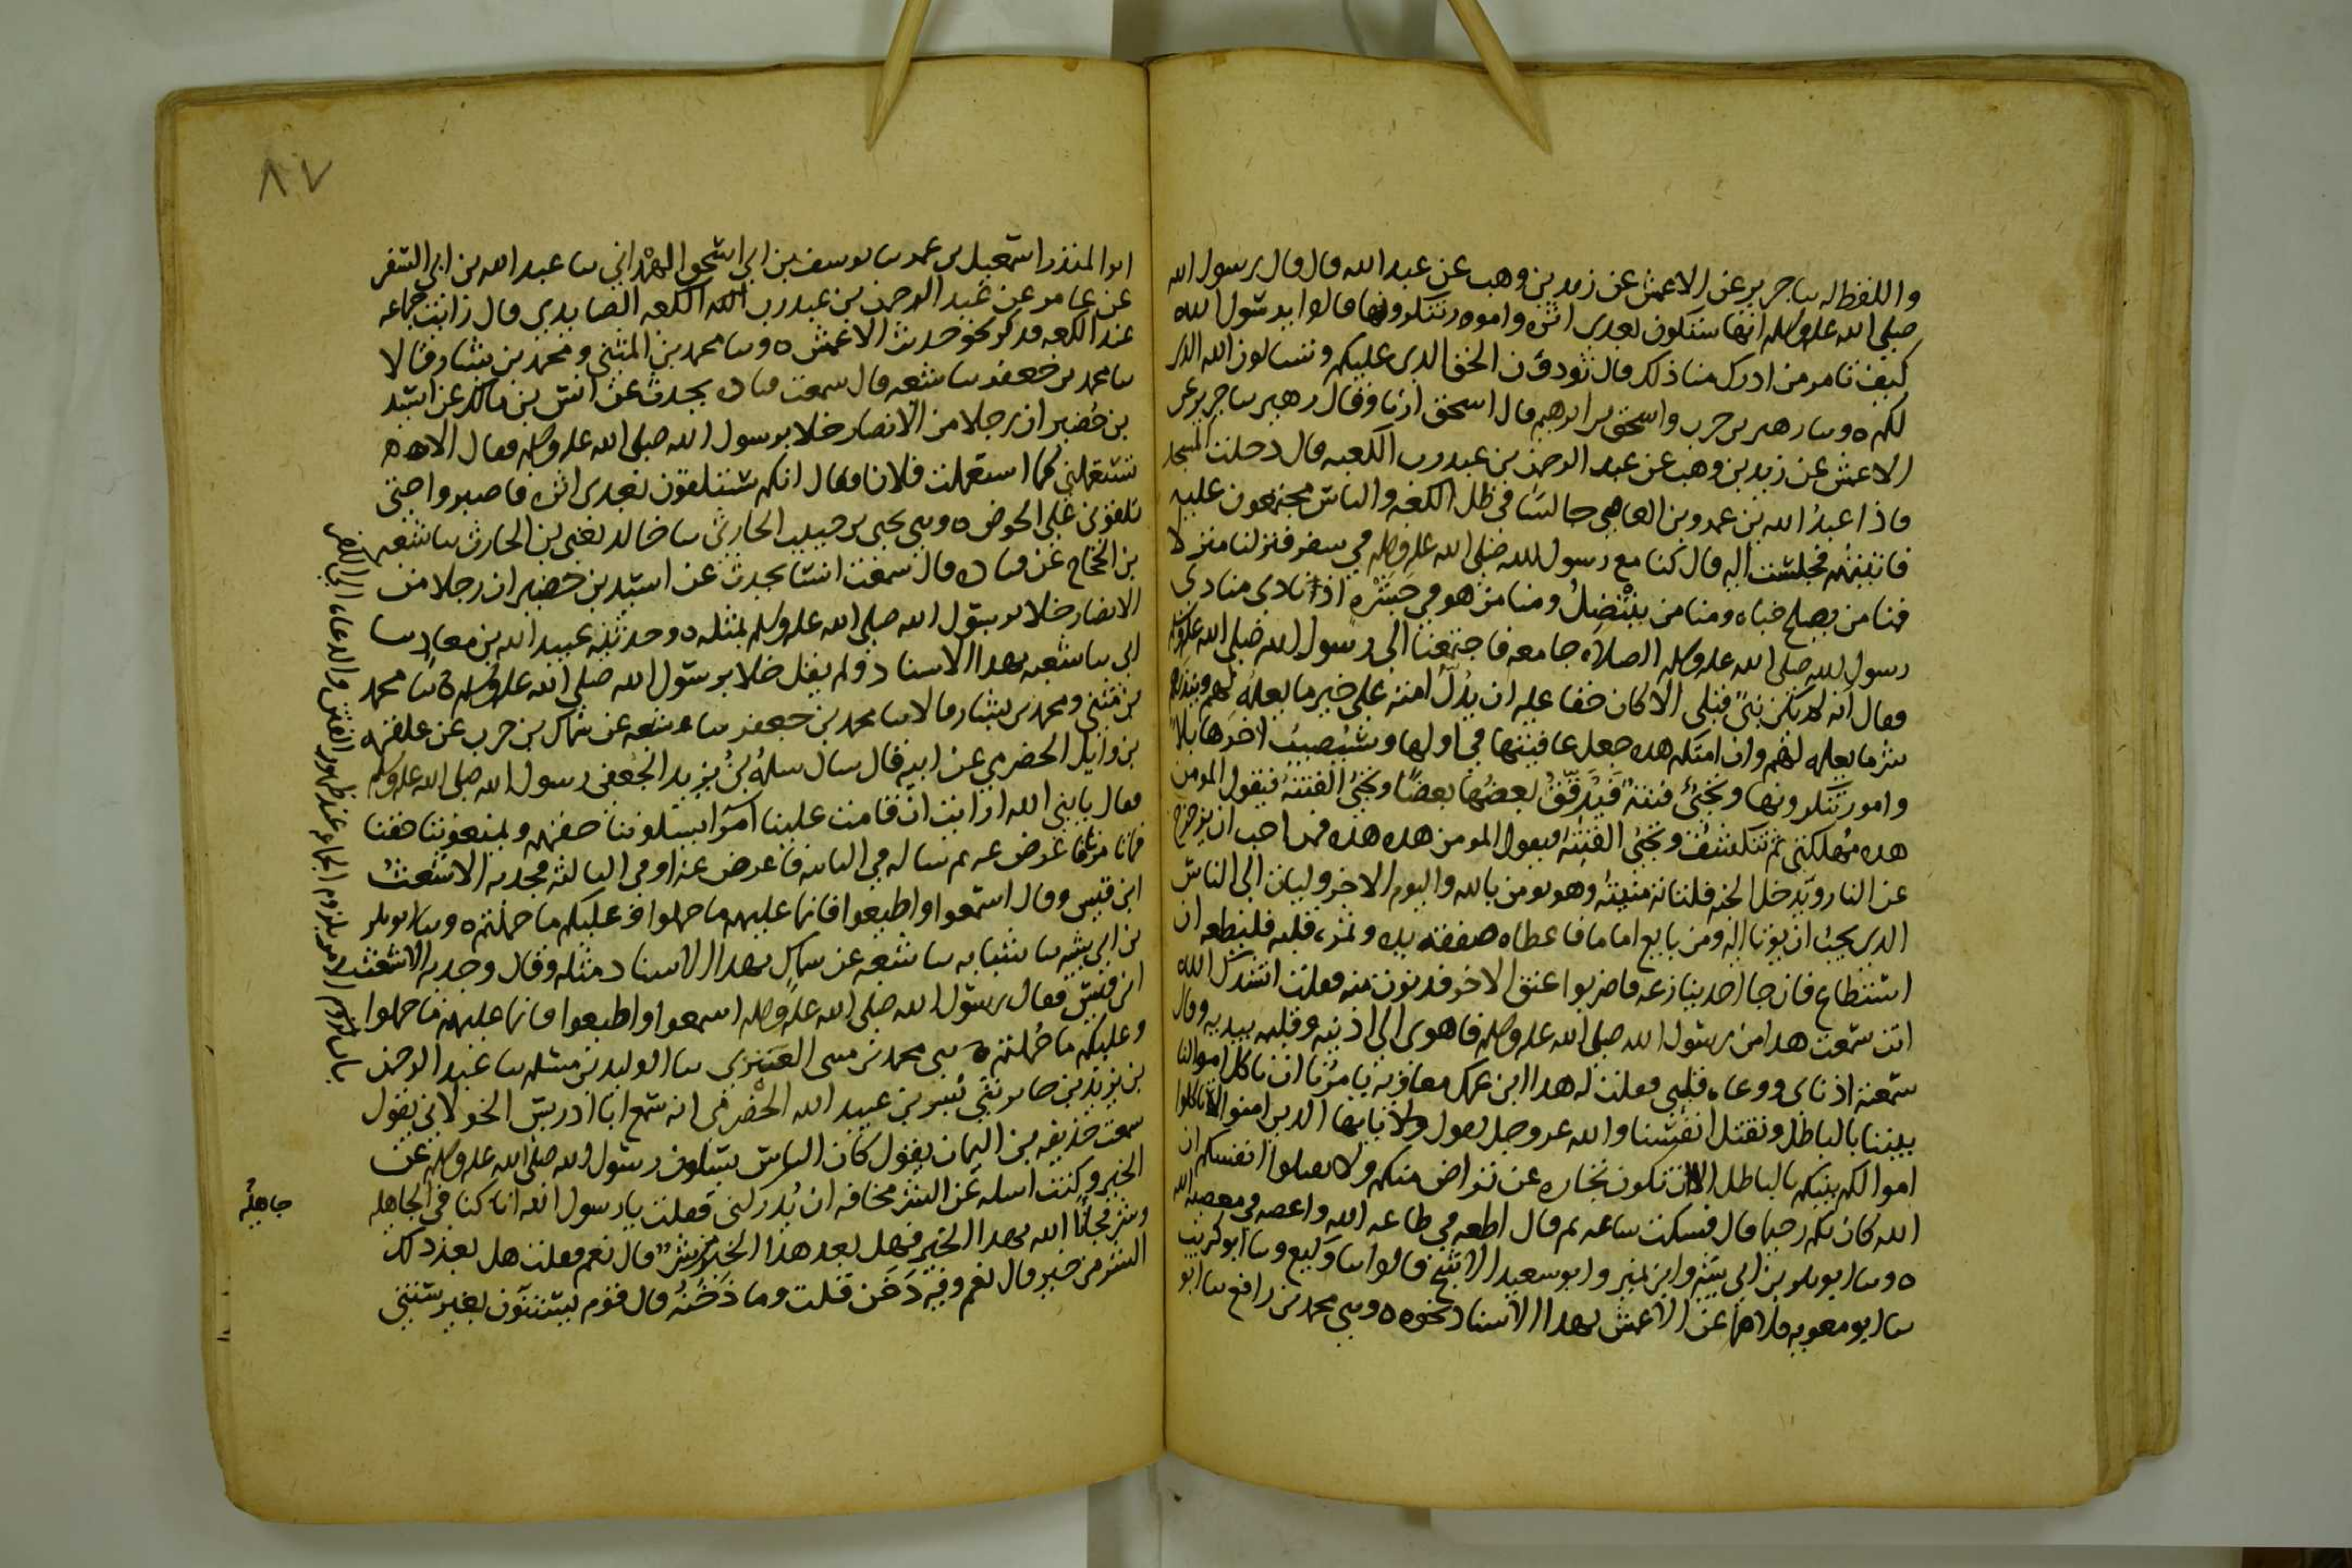 واللفظ له سا جرير عن الاعمش عن زيد بن وهب عن عبد الله قال قال رسول الله
صلى الله عليه وسلم انها ستكون بعدى اثره وامور تنكرونها قالوا يرسول الله
كيف تامر من ادرك منا ذلك قال تودون الحق الذى عليكم وتسالون الله الذى
لكم ٥ وسا زهير بن حرب واسحق بن ابرهيم قال اسحق انا وقال زهير سا جرير عن
الاعمش عن زيد بن وهب عن عبد الرحمن بن عبد رب الكعبه قال دخلت المسجد
فاذا عبدُ الله بن عمرو بن العاصي جالسا في ظل الكعبه والناس مجتمعون عليه
فاتيتهم فجلست اليه قال كنا مع رسول الله صلى الله عليه وسلم في سفر فنزلنا منزلا
فمنا من يصلح خباه ومنا من ينتضلُ ومنا من هو في جَشَره اذ نادى منادى
رسول الله صلى الله عليه وسلم الصلاه جامعه فاجتمعنا الى رسول الله صلى الله عليه وسلم
فقال انه لم يكن نبىٌ قبلى الا كان حقا عليه ان يدُلَّ امته على خير ما يعلمه لهم وينذرهم
شر ما يعلمه لهم وان امتكم هذه جعل عافيتها في اولها وسيُصيبُ اخرها بلا
وامور تنكرونها وتجىُ فتنة فَيُرَقِّقُ بعضُها بعضًا وتجىُ الفتنةُ فيقول المومن
هذه مُهلكتى ثم تنكشفُ وتجىُ الفتنةُ فيقول المومن هذه هذه فمن احب ان يزحزح
عن النار ويدخل الجنه فلتاته منيتُه وهو يومن بالله واليوم الاخر وليات الى الناس
الذى يحبُ ان يوتا اليه ومن بايع اماما فاعطاه صفقه يده وثمره قلبه فليطعه ان
استطاع فان جا احد ينازعه فاضربوا عنق الاخر فدنوت منه فقلت انشدك الله
انت سمعت هذا من رسول الله صلى الله عليه وسلم فاهوى الى اذنيه وقلبه بيديه وقال
سمعته اذناى ووعاه قلبى فقلت له هذا ابن عمك معاويه يامرنا ان ناكل اموالنا
بيننا بالباطل ونقتل انفسنا والله عز وجل يقول يايها الذين امنوا لا تاكلوا
اموالكم بينكم بالباطل الا ان تكون تجاره عن تراض منكم ولا تقتلوا انفسكم ان
الله كان بكم رحيما قال فسكت ساعه ثم قال اطعه في طاعه الله واعصه في معصيه الله
٥ وسا ابو بكر بن ابى شيبه وابن نمير وابو سعيد الاشج قالوا سا وكيع وسا ابو كريب
سا ابو معويه كلاهما عن الاعمش بهذا الاسناد نحوه ٥ وسى محمد بن رافع سا ابو
٨٧
ابو المنذر اسمعيل بن عمر سا يوسف بن ابى اسحق الهمْدانى سا عبد الله بن ابى السفر
عن عامر عن عبد الرحمن بن عبد رب الكعبه الصايدى قال رايت جماعه
عند الكعبه فذكر نحو حديث الاعمش ٥ وسا محمد بن المثنى ومحمد بن بشار قالا
سا محمد بن جعفر سا شعبه قال سمعت قتاده يحدث عن انس بن مالك عن اسيد
بن حُضير ان رجلا من الانصار خلا برسول الله صلى الله عليه وسلم فقال الا
تستعملنى كما استعملت فلانا فقال انكم ستلقون بعدى اثره فاصبروا حتى
تلقونى على الحوض ٥ وسى يحيى بن حبيب الحارثى سا خالد يعنى بن الحارث سا شعبه
بن الحجاج عن قتاده قال سمعت انسا يحدث عن اسيد بن حضير ان رجلا من
الانصار خلا برسول الله صلى الله عليه وسلم بمثله ٥ وحدثنيه عبيد الله بن معاذ سا
ابى سا شعبه بهذا الاسناد ولم يقل خلا برسول الله صلى الله عليه وسلم ٥ سا محمد
بن مثنى ومحمد بن بشار قالا سا محمد بن جعفر سا شعبه عن سماك بن حرب عن علقمه
بن وايل الحضرمي عن ابيه قال سال سلمهُ بنُ يزيد الجعفى رسول الله صلى الله عليه وسلم
فقال يا نبى الله ارايت ان قامت علينا امرا يسلونا حقهم ويمنعونا حقنا
فما تامرنا فاعرض عنه ثم ساله في الثانيه فاعرض عنه او في الثالثه فجذبه الاشعثُ
ابن قيس وقال اسمعوا واطيعوا فانما عليهم ما حملوا وعليكم ما حملتم ٥ وسا ابو بكر
بن ابى شيبه سا شبابه سا شعبه عن سماك بهذا الاسناد مثله وقال وجذبه الاشعث
ابن قيس فقال رسول الله صلى الله عليه وسلم اسمعوا واطيعوا فانما عليهم ما حملوا
وعليكم ما حُملتم ٥ سى محمد بن مثنى العَنَزى سا الوليد بن مسلم سا عبد الرحمن
بن يزيد بن جابر ثنى بُسر بن عبيد الله الحضرمى انه سمع ابا ادريس الخولانى يقول
سمعت حذيفه بن اليمان يقول كان الناس يسلون رسول الله صلى الله عليه وسلم عن
الخير وكنت اسله عن الشر مخافه ان يُدركنى فقلت يا رسول الله انا كنا في الجاهليه
وشر فجانا الله بهذا الخير فهل بعد هذا الخير من شر قال نعم فقلت هل بعد ذلك
الشر من خير قال نعم وفيه دَخَن قلت وما دَخَنُه قال قوم يستنون بغير سنتى
باب لزوم الامر بلزوم الجماعه عند ظهور الفتن والدعاء الى الكفر
جاهليه